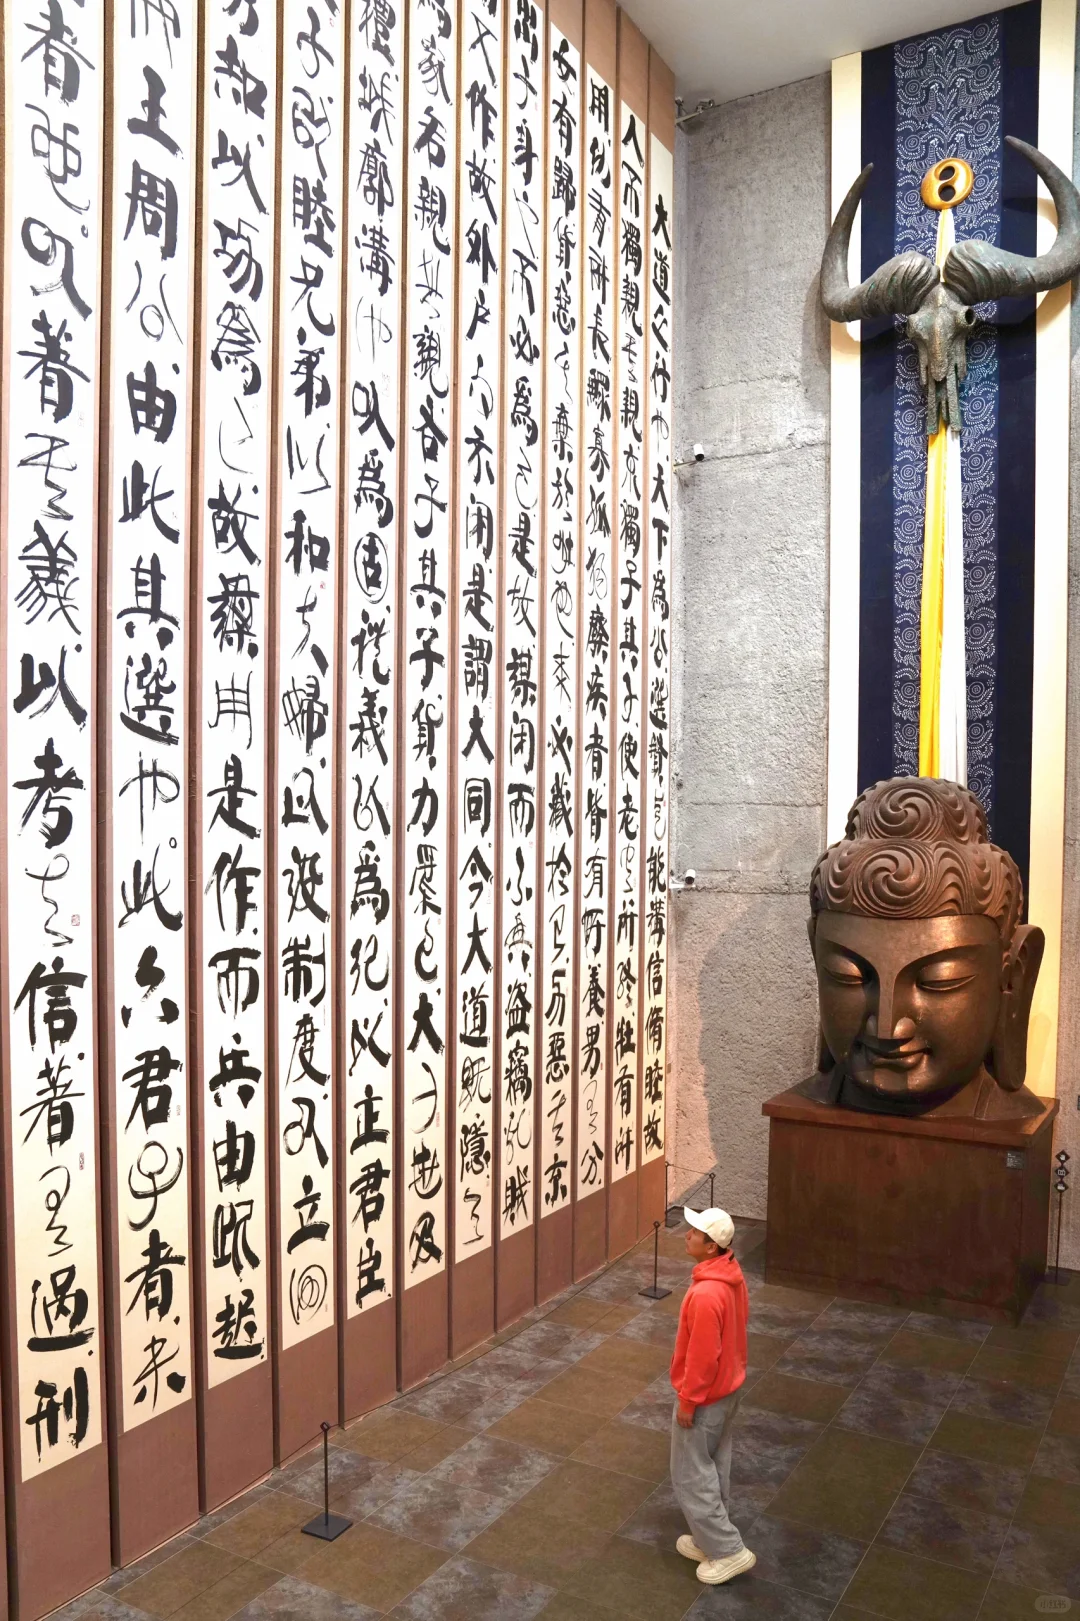 大道之行也天下為公選賢與能講信脩睦故
人不獨親其親不獨子其子使老有所終壯有所
用幼有所長鰥寡孤獨廢疾者皆有所養男有分
女有歸貨惡其棄於地也不必藏於己力惡其不
出于身也不必為己是故謀閉而不興盜竊亂賊
不作故外戶而不閉是謂大同今大道既隱天
為家各親其親各子其子貨力為己大人世及
禮城郭溝池以為固禮義以為紀以正君臣
子以睦兄弟以和夫婦以設制度以立田
知以功為己故謀用是作而兵由此起
成王周公由此其選也。此六君子者未
者也。以著其義以考其信著有過刑